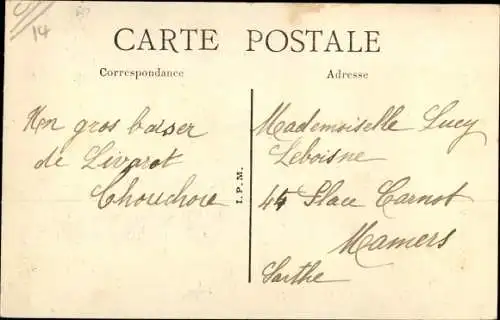 14
CARTE POSTALE
Correspondance
Adresse
Un gros baiser
de Livarot
Chouchou
I. P. M.
Mademoiselle Lucy
Leboisne
44 Place Carnot
Mamers
Sarthe